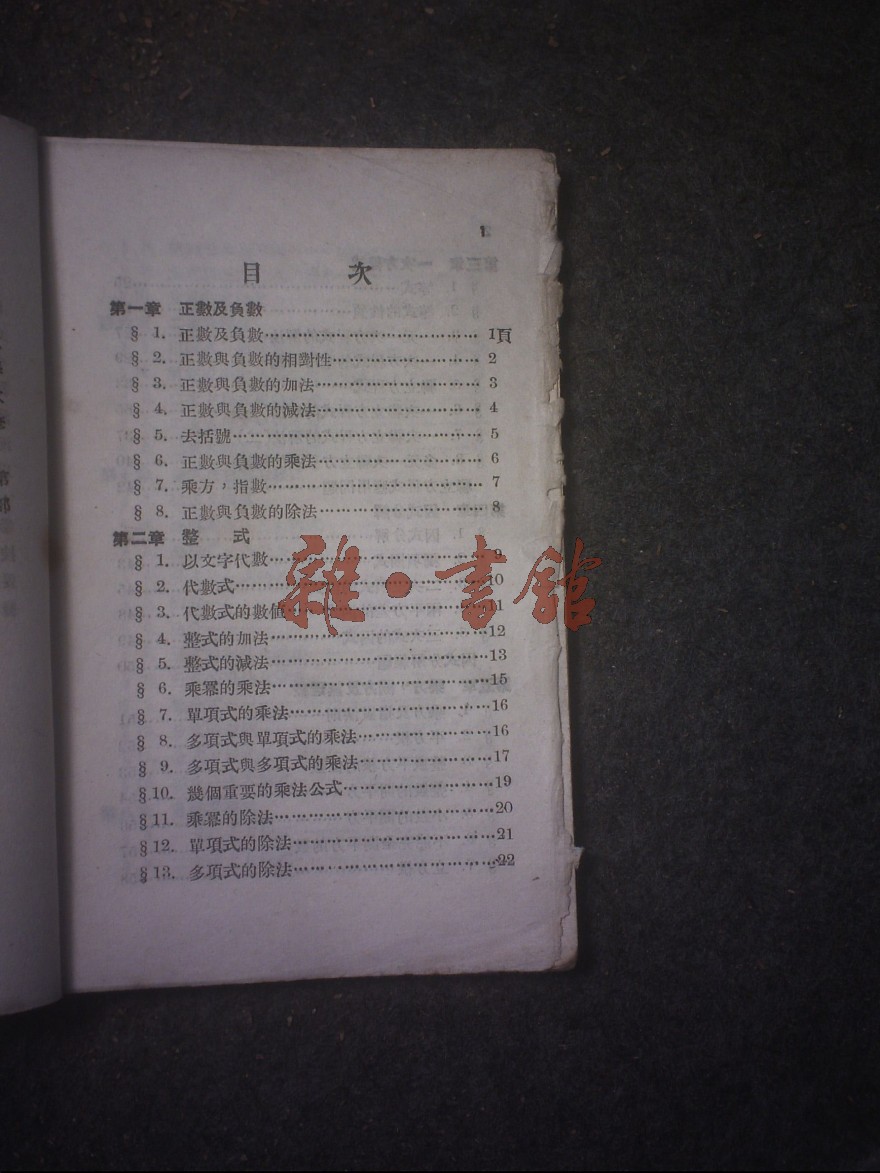 目 次
第一章 正數及負數
§ 1. 正數及負數…………………………………… 1頁
§ 2. 正數與負數的相對性……………………… 2
§ 3. 正數與負數的加法………………………… 3
§ 4. 正數與負數的減法………………………… 4
§ 5. 去括號……………………………………… 5
§ 6. 正數與負數的乘法………………………… 6
§ 7. 乘方，指數………………………………… 7
§ 8. 正數與負數的除法………………………… 8
第二章 整 式
§ 1. 以文字代數………………………………… 9
§ 2. 代數式………………………………………10
§ 3. 代數式的數値………………………………11
§ 4. 整式的加法…………………………………12
§ 5. 整式的減法…………………………………13
§ 6. 乘冪的乘法…………………………………15
§ 7. 單項式的乘法………………………………16
§ 8. 多項式與單項式的乘法……………………16
§ 9. 多項式與多項式的乘法……………………17
§10. 幾個重要的乘法公式………………………19
§11. 乘冪的除法…………………………………20
§12. 單項式的除法………………………………21
§13. 多項式的除法………………………………22
雜·書館